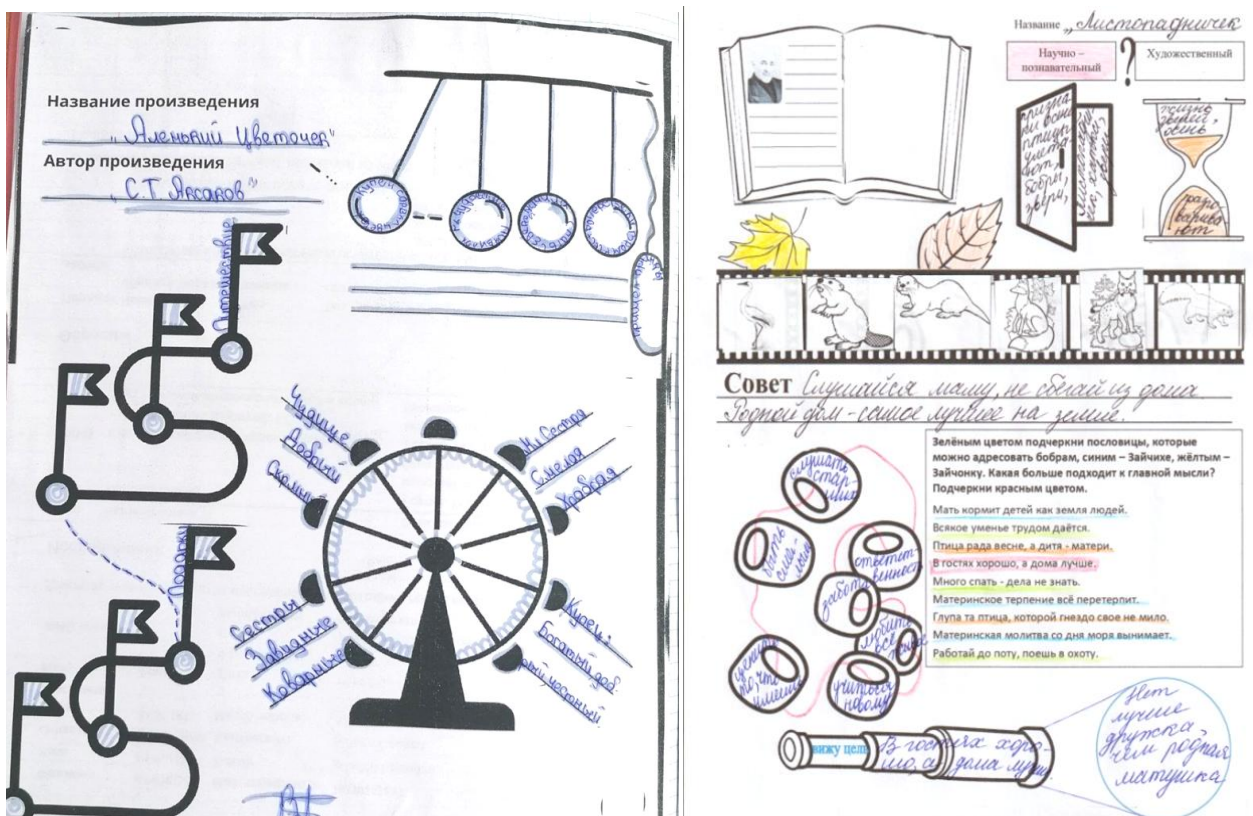 Название произведения
„Аленький Цветочек"
Автор произведения
„С.Т. Аксаков"
Путешествие
Подарки
Чудище
Добрый
Скромный
Мл Сестра
Смелая
Храбрая
Сёстры
Завидные
Коварные
Купец:
Богатый, доб.
рый, честный
Название „Листопадничек
Научно –
познавательный
?
Художественный
жизнь
зверей,
осень
разго-
варива-
ют
Совет Слушайся маму, не сбегай из дома.
Родной дом - самое лучшее на земле.
Зелёным цветом подчеркни пословицы, которые
можно адресовать бобрам, синим – Зайчихе, жёлтым –
Зайчонку. Какая больше подходит к главной мысли?
Подчеркни красным цветом.
Мать кормит детей как земля людей.
Всякое уменье трудом даётся.
Птица рада весне, а дитя - матери.
В гостях хорошо, а дома лучше.
Много спать - дела не знать.
Материнское терпение всё перетерпит.
Глупа та птица, которой гнездо свое не мило.
Материнская молитва со дня моря вынимает.
Работай до поту, поешь в охоту.
слушать
стар-
ших
быть
смe-
лым
ответст-
венность
забота
любить
всё
ценить
то, что
имеешь
учиться
новому
вижу цель
В гостях хоро-
шо, а дома лучше.
Нет
лучше
дружка,
чем родная
матушка